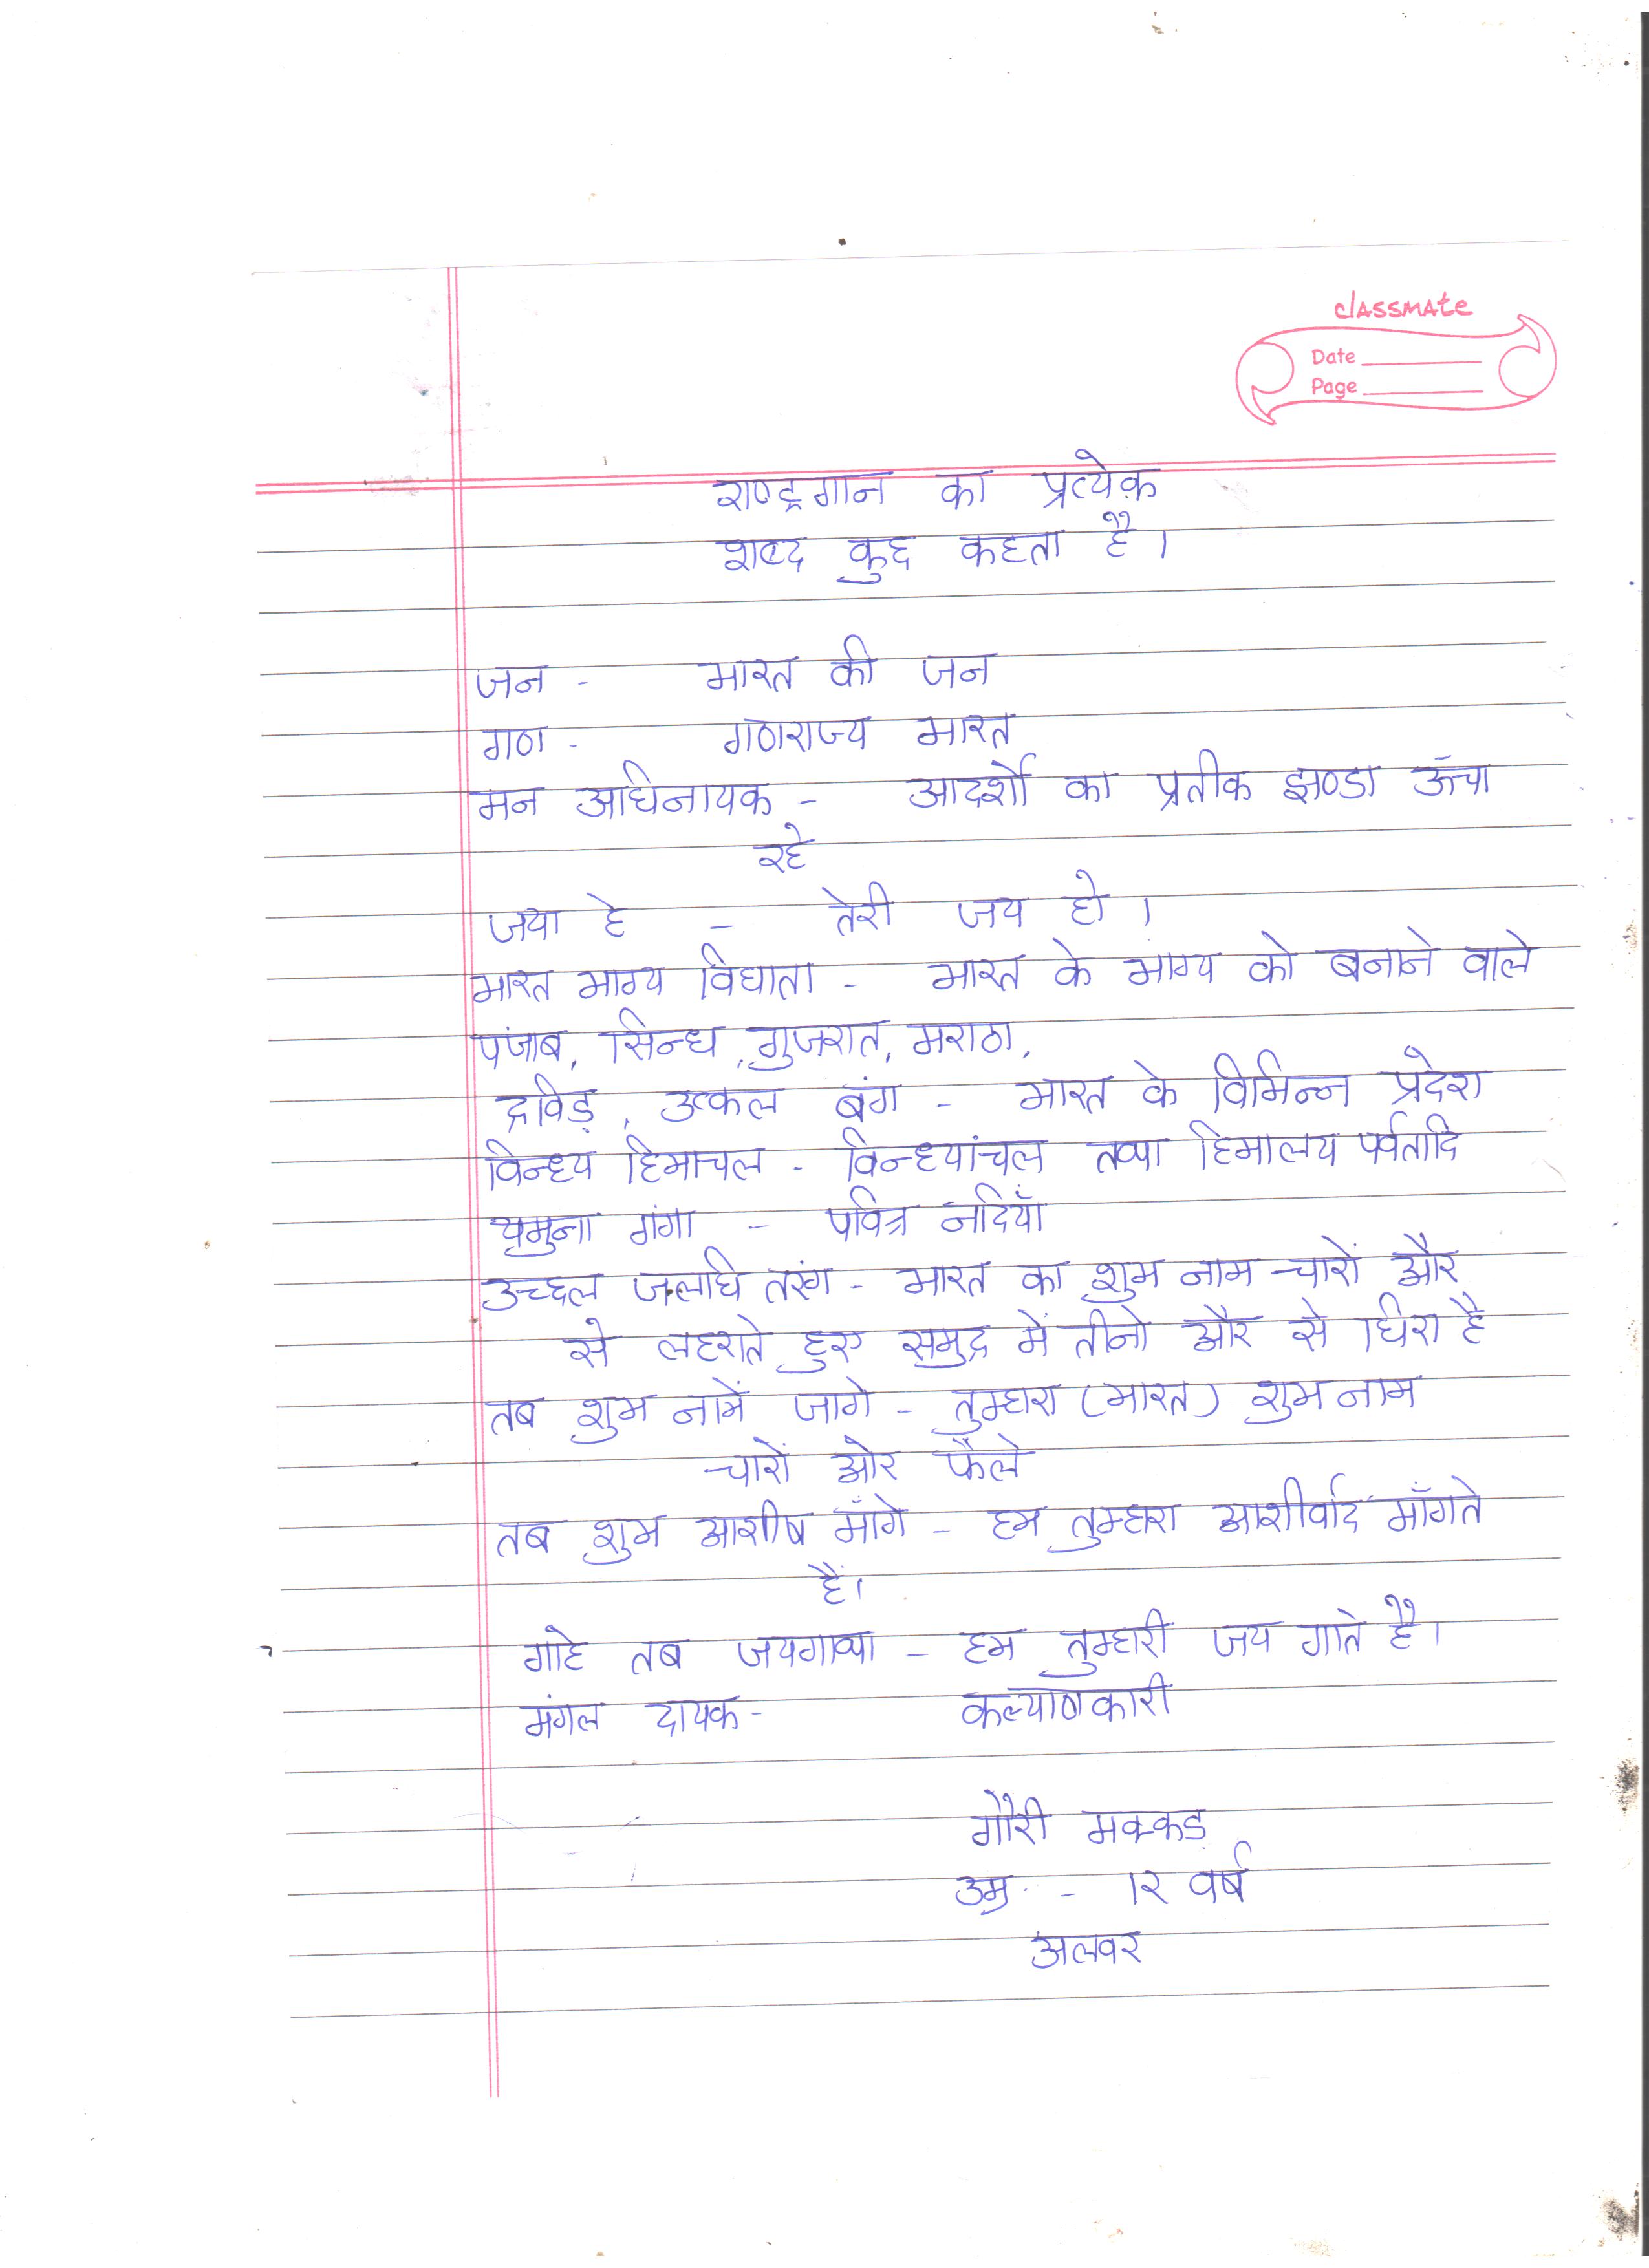 classmate
Date
Page
राष्ट्रगान का प्रत्येक
शब्द कुछ कहता है।
जन - भारत की जन
गण - गणराज्य भारत
मन अधिनायक - आदर्शों का प्रतीक झण्डा ऊँचा
रहे
जया हे - तेरी जय हो।
भारत भाग्य विधाता - भारत के भाग्य को बनाने वाले
पंजाब, सिन्ध, गुजरात, मराठा,
द्रविड़, उत्कल बंग - भारत के विभिन्न प्रदेश
विन्ध्य हिमाचल - विन्ध्यांचल तथा हिमालय पर्वतादि
यमुना गंगा - पवित्र नदियाँ
उच्छल जलधि तरंग - भारत का शुभ नाम चारों और
से लहराते हुए समुद्र में तीनो और से घिरा है
तब शुभ नामें जागे - तुम्हारा (भारत) शुभ नाम
चारों ओर फैले
तब शुभ आशीष माँगे - हम तुम्हारा आशीर्वाद माँगते
हैं।
गाहे तब जयगाथा - हम तुम्हारी जय गाते है।
मंगल दायक - कल्याणकारी
गौरी मक्कड़
उम्र - १२ वर्ष
अलवर